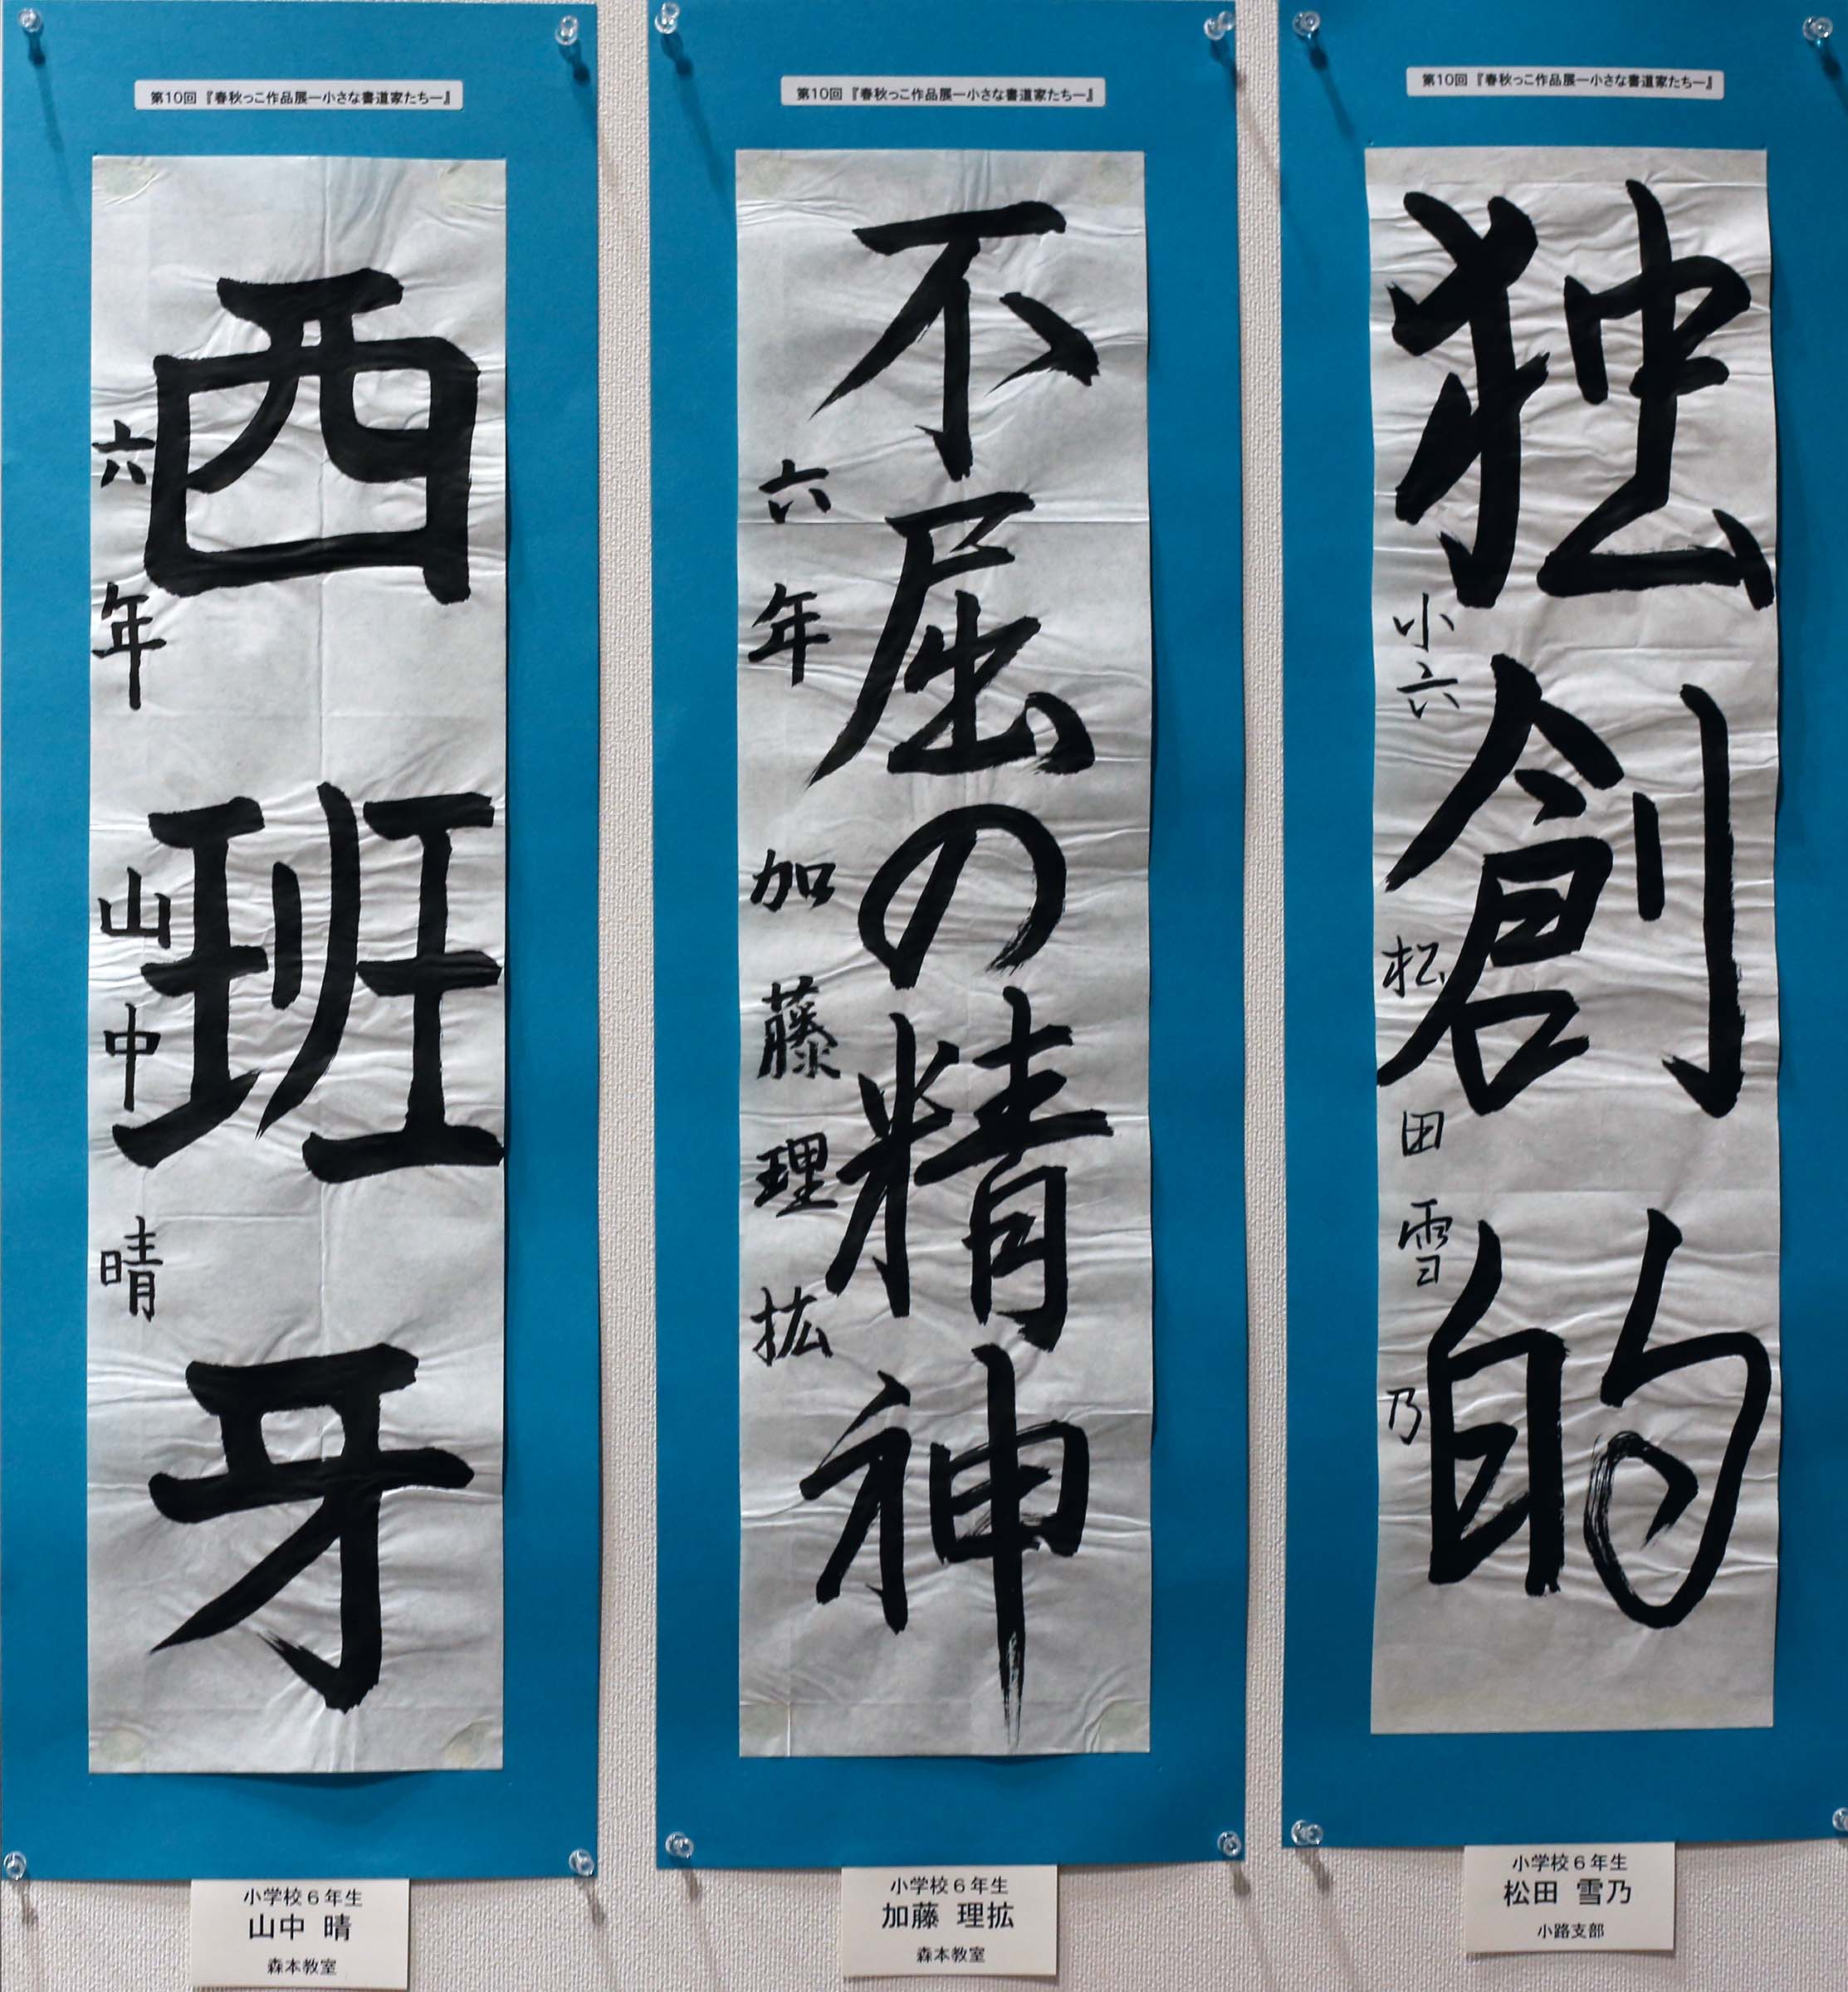 第10回『春秋っこ作品展―小さな書道家たち―』
西班牙
六年 山中 晴
小学校6年生
山中 晴
森本教室
第10回『春秋っこ作品展―小さな書道家たち―』
不屈の精神
六年 加藤理拡
小学校6年生
加藤 理拡
森本教室
第10回『春秋っこ作品展―小さな書道家たち―』
独創的
小六 松田雪乃
小学校6年生
松田 雪乃
小路支部